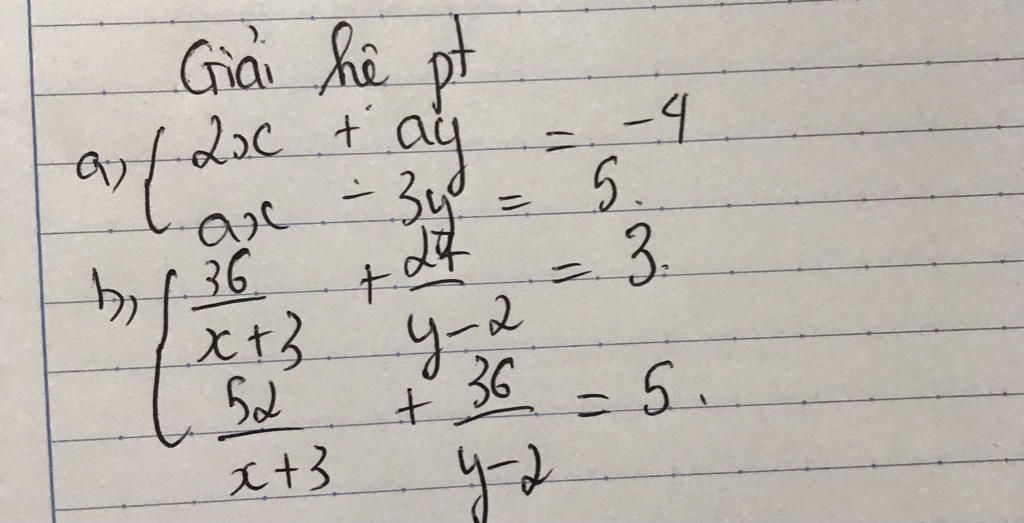 Giải hê pt
a, { 2x + ay = -4
ax - 3y = 5.
b, { 36/(x+3) + 27/(y-2) = 3.
52/(x+3) + 36/(y-2) = 5.